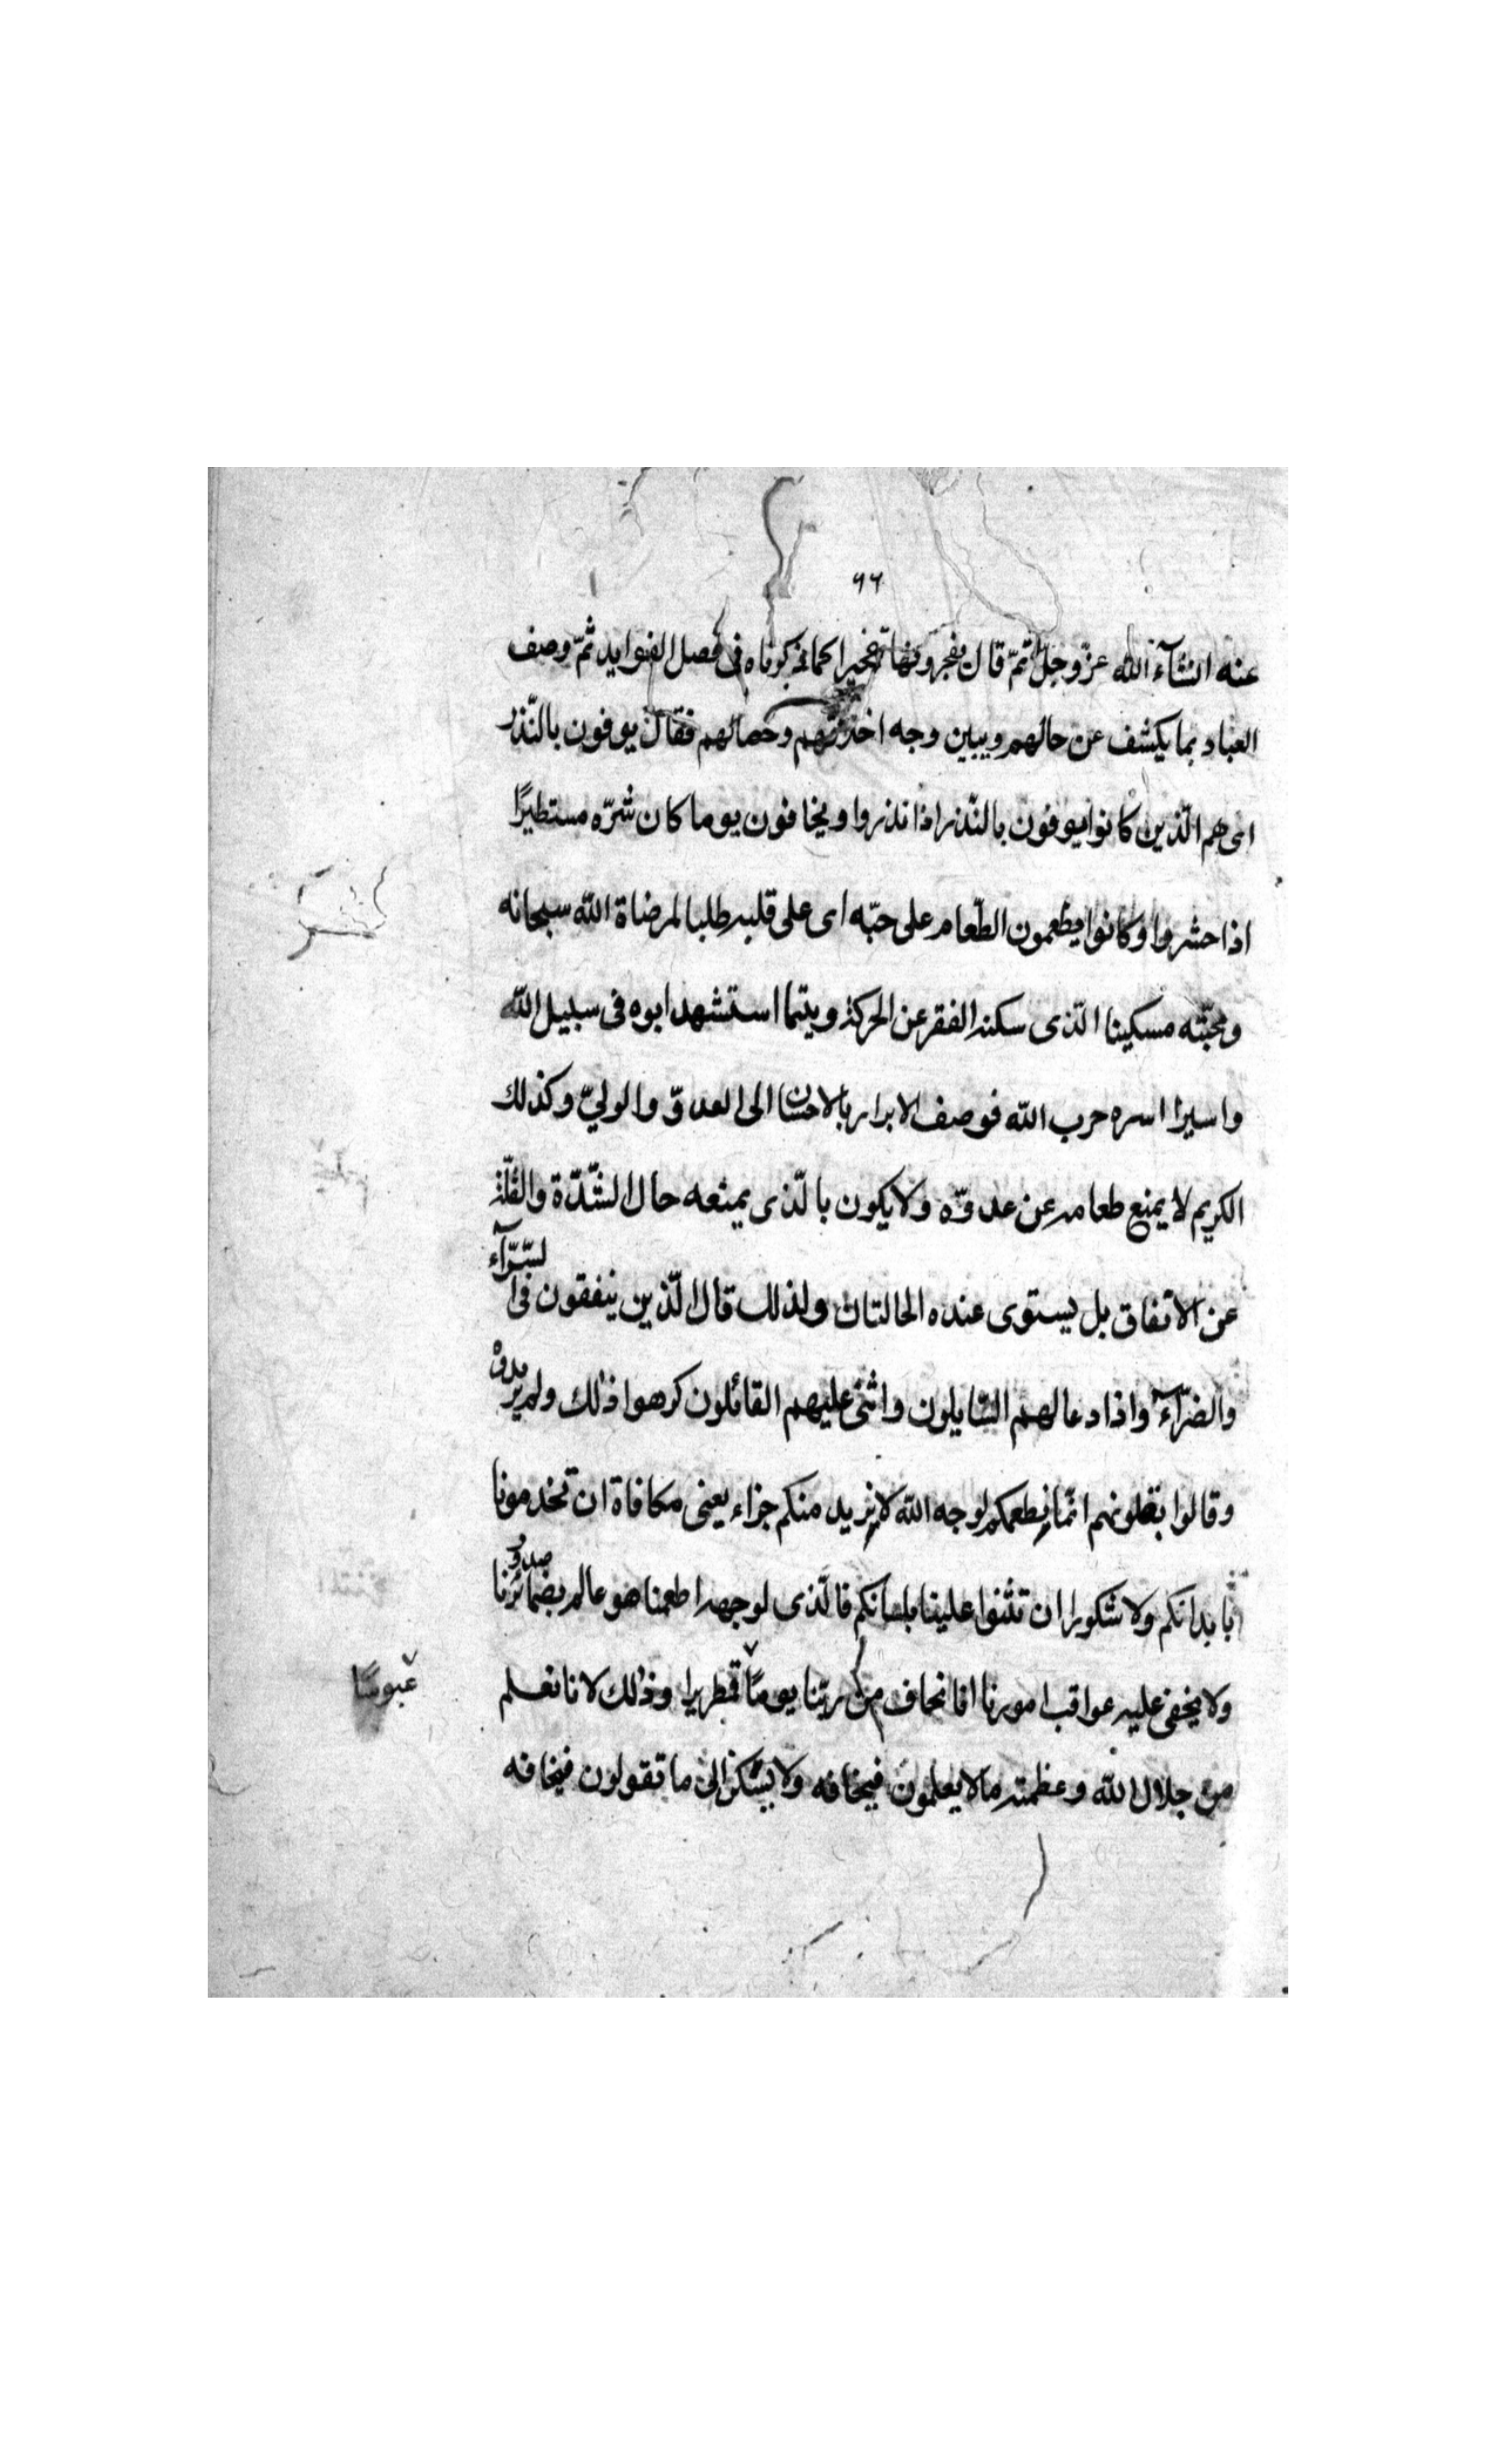 ٩٦
عنه انشآء اللّه عزّ وجلّ ثمّ قال يفجرونها تفجيرا كما ذكرناه فى فصل الفوايد ثمّ وصف
العباد بما يكشف عن حالهم ويبين وجه وخصالهم فقال يوفون بالنّذر
اى هم الّذين كانوا يوفون بالنّذر اذا نذروا ويخافون يوما كان شرّه مستطيرًا
اذا حشروا وكانوا يطعمون الطّعام على حبّه اى على قلبه طلبا لمرضاة اللّه سبحانه
ومحبّته مسكينا الّذى سكنه الفقر عن الحركة ويتيما استشهد ابوه فى سبيل اللّه
واسيرا اسره حرب اللّه فوصف الابرار بالاحسان الى العدوّ والوليّ وكذلك
الكريم لا يمنع طعامه عن عدوّه ولا يكون بالّذى يمنعه حال الشّدّة والقلّة
عن الانفاق بل يستوى عنده الحالتان ولذلك قال الّذين ينفقون فى السّرّآء
والضرّآء واذا دعا لهم السّايلون واثنى عليهم القائلون كرهوا ذلك ولم يريدوه
وقالوا بقلوبهم انّما نطعمكم لوجه اللّه لا نريد منكم جزاء يعنى مكافاة ان تخدمونا
بابدانكم ولا شكورا ان تثنوا علينا بلسانكم فالّذى لوجهه اطعمنا هو عالم بضمائرنا
صدو
ولا يخفى عليه عواقب امورنا انا نخاف من ربّنا يومًا قمطريرا وذلك لانا نعلم
عبوسًا
من جلال اللّه وعظمته ما لا يعلمون فيخافه ولا يشكر الى ما تقولون فيخافه